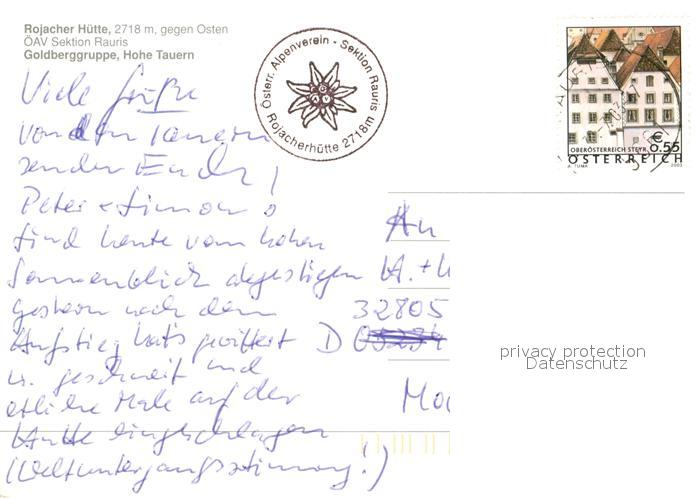 Rojacher Hütte, 2718 m, gegen Osten
ÖAV Sektion Rauris
Goldberggruppe, Hohe Tauern
Österr. Alpenverein - Sektion Rauris
Rojacherhütte 2718m
€
0.55
OBERÖSTERREICH STEYR
ÖSTERREICH
A. TUMA 2003
Viele Grüße
von den Tauern
senden Euch
Peter + Simon
Sind heute vom hohen
Sonnenblick abgestiegen
gestern nach dem
Aufstieg hats gewittert
u. geschneit und
etliche Male auf der
Hütte eingeschlagen
(Weltuntergangsstimmung!)
An
32805
D
privacy protection
Datenschutz